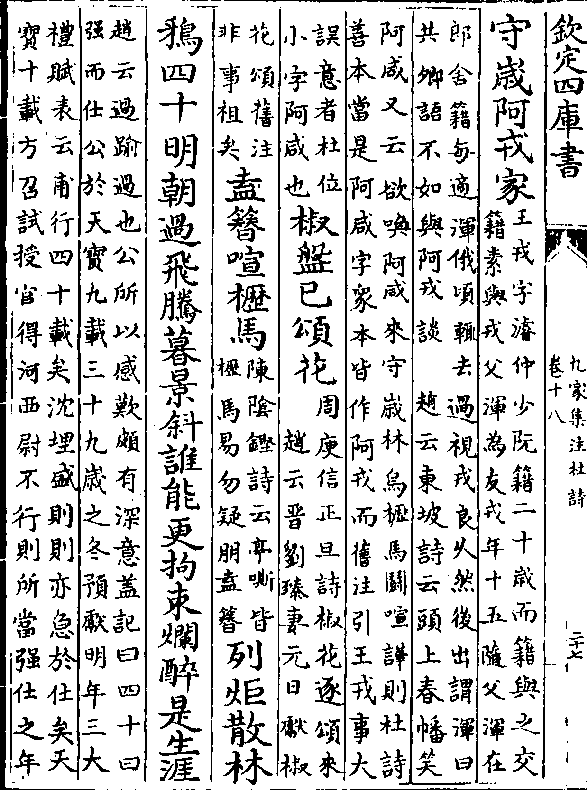 欽定四庫書
九家集注杜詩
卷十八
二十七
守歲阿戎家
王戎字濬仲少阮籍二十歲而籍與之交
籍素與戎父渾為友戎年十五隨父渾在
郎舍籍每適渾俄頃輒去過視戎良久然後出謂渾曰
共卿語不如與阿戎談　趙云東坡詩云頭上春幡笑
阿咸又云欲喚阿咸來守歲林烏櫪馬鬭喧譁則杜詩
善本當是阿咸字衆本皆作阿戎而舊注引王戎事大
誤意者杜位
小字阿咸也
椒盤已頌花
周庾信正旦詩椒花逐頌來
趙云晉劉臻妻元日獻椒
花頌舊注
非事祖矣
盍簪喧櫪馬
陳陰鏗詩云亭嘶皆
櫪馬易勿疑朋盍簪
列炬散林
鵶四十明朝過飛騰暮景斜誰能更拘束爛醉是生涯
趙云過踰過也公所以感歎頗有深意蓋記曰四十曰
强而仕公於天寶九載三十九歲之冬預獻明年三大
禮賦表云甫行四十載矣沈埋盛則則亦急於仕矣天
寶十載方召試授官得河西尉不行則所當强仕之年